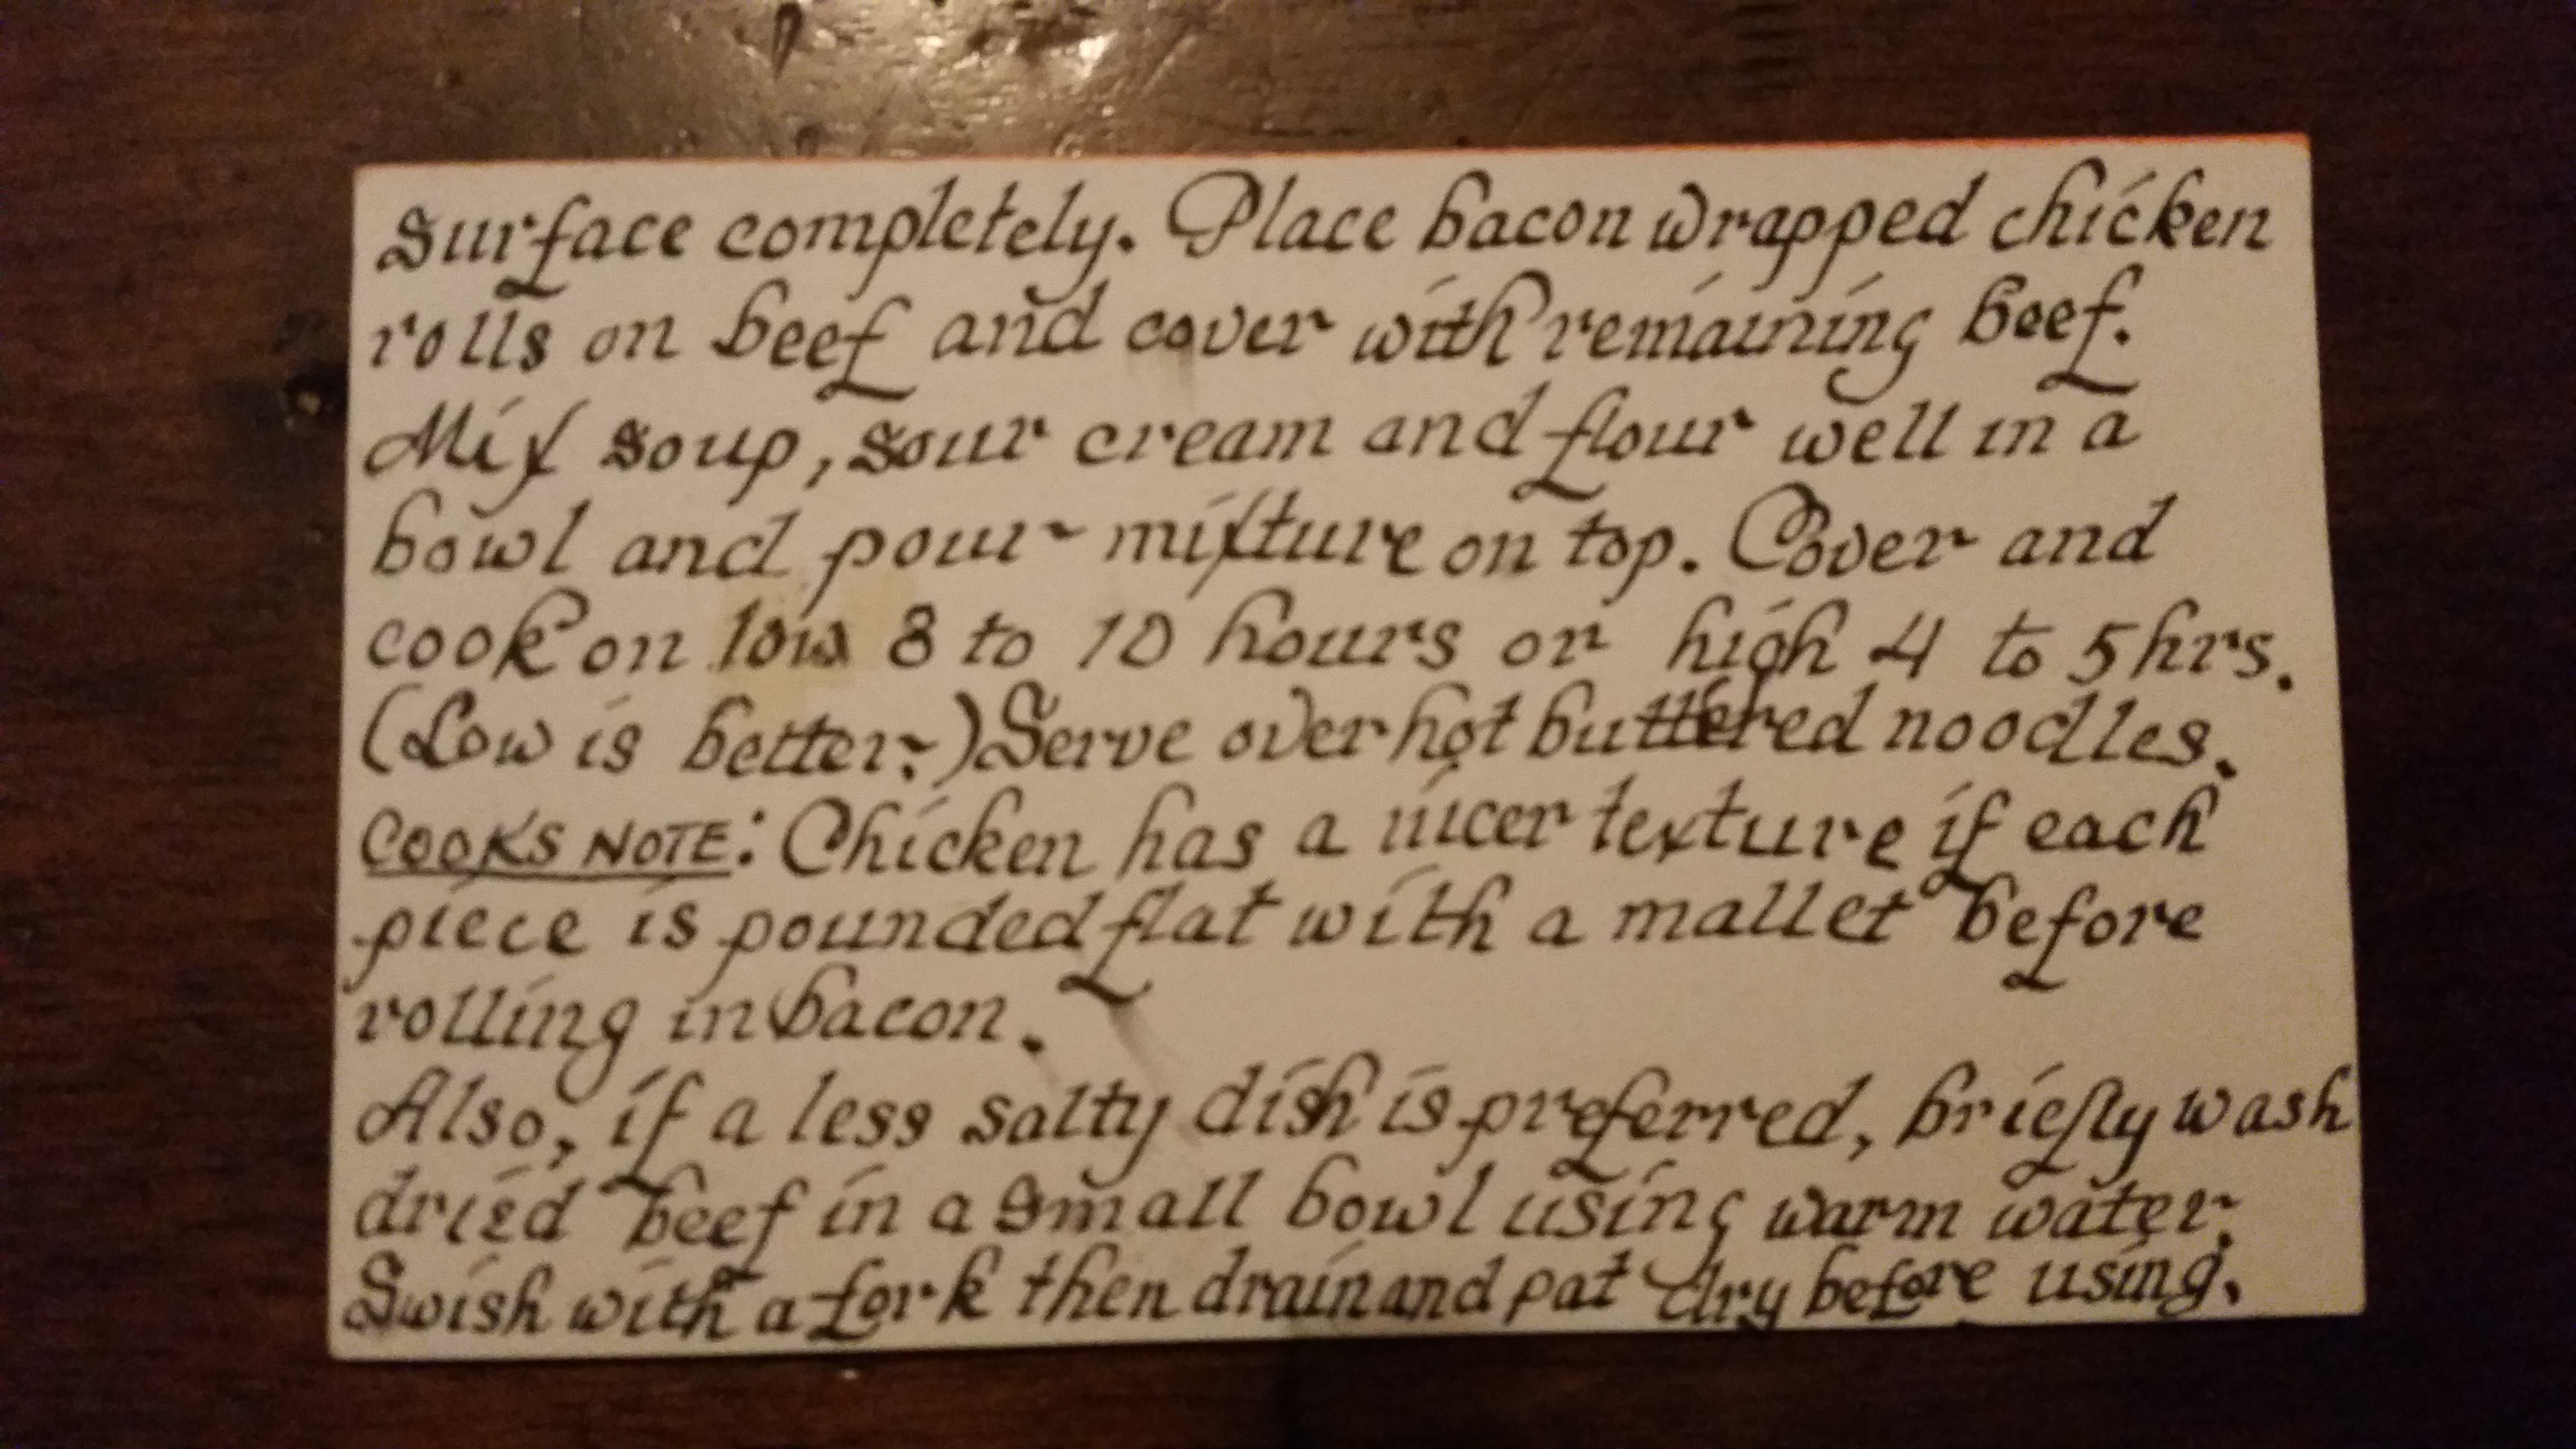 Surface completely. Place bacon wrapped chicken
rolls on beef and cover with remaining beef.
Mix soup, sour cream and flour well in a
bowl and pour mixture on top. Cover and
cook on low 8 to 10 hours or high 4 to 5 hrs.
(Low is better.) Serve over hot buttered noodles.
COOKS NOTE: Chicken has a nicer texture if each
piece is pounded flat with a mallet before
rolling in bacon.
Also, if a less salty dish is preferred, briefly wash
dried beef in a small bowl using warm water.
Swish with a fork then drain and pat dry before using.